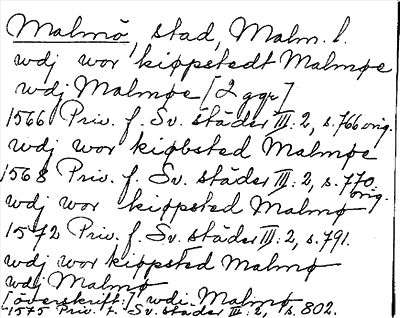 Malmö, stad, Malm. l.
wdj wor kiøpstedt Malmøe
wdj Malmøe [2 ggr]
1566 Priv. f. Sv. städer III: 2, s. 766 orig.
wdj wor kiøbsted Malmøe
1568 Priv. f. Sv. städer III: 2, s. 770. orig.
wdj wor kiøppsted Malmø
1572 Priv. f. Sv. städer III: 2, s. 791.
wdj wor kiøpsted Malmø
wdj Malmø
[överskrift:] wdj Malmø
1575 Priv. f. Sv. städer III: 2, s. 802.